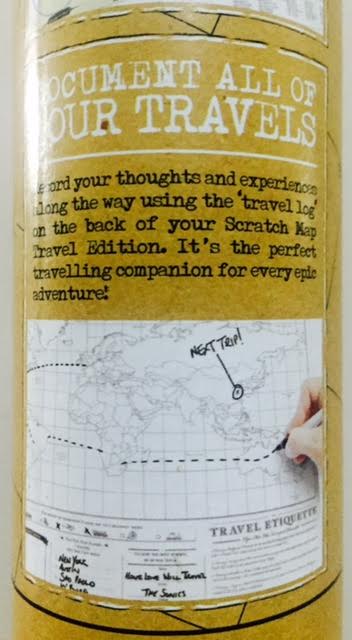 DOCUMENT ALL OF
YOUR TRAVELS
Record your thoughts and experiences
along the way using the 'travel log'
on the back of your Scratch Map
Travel Edition. It's the perfect
travelling companion for every epic
adventure!
NEXT TRIP!
TRAVEL ETIQUETTE
NEW YORK
AUSTIN
SAO PAOLO
HAVE LOVE WILL TRAVEL
THE SONICS